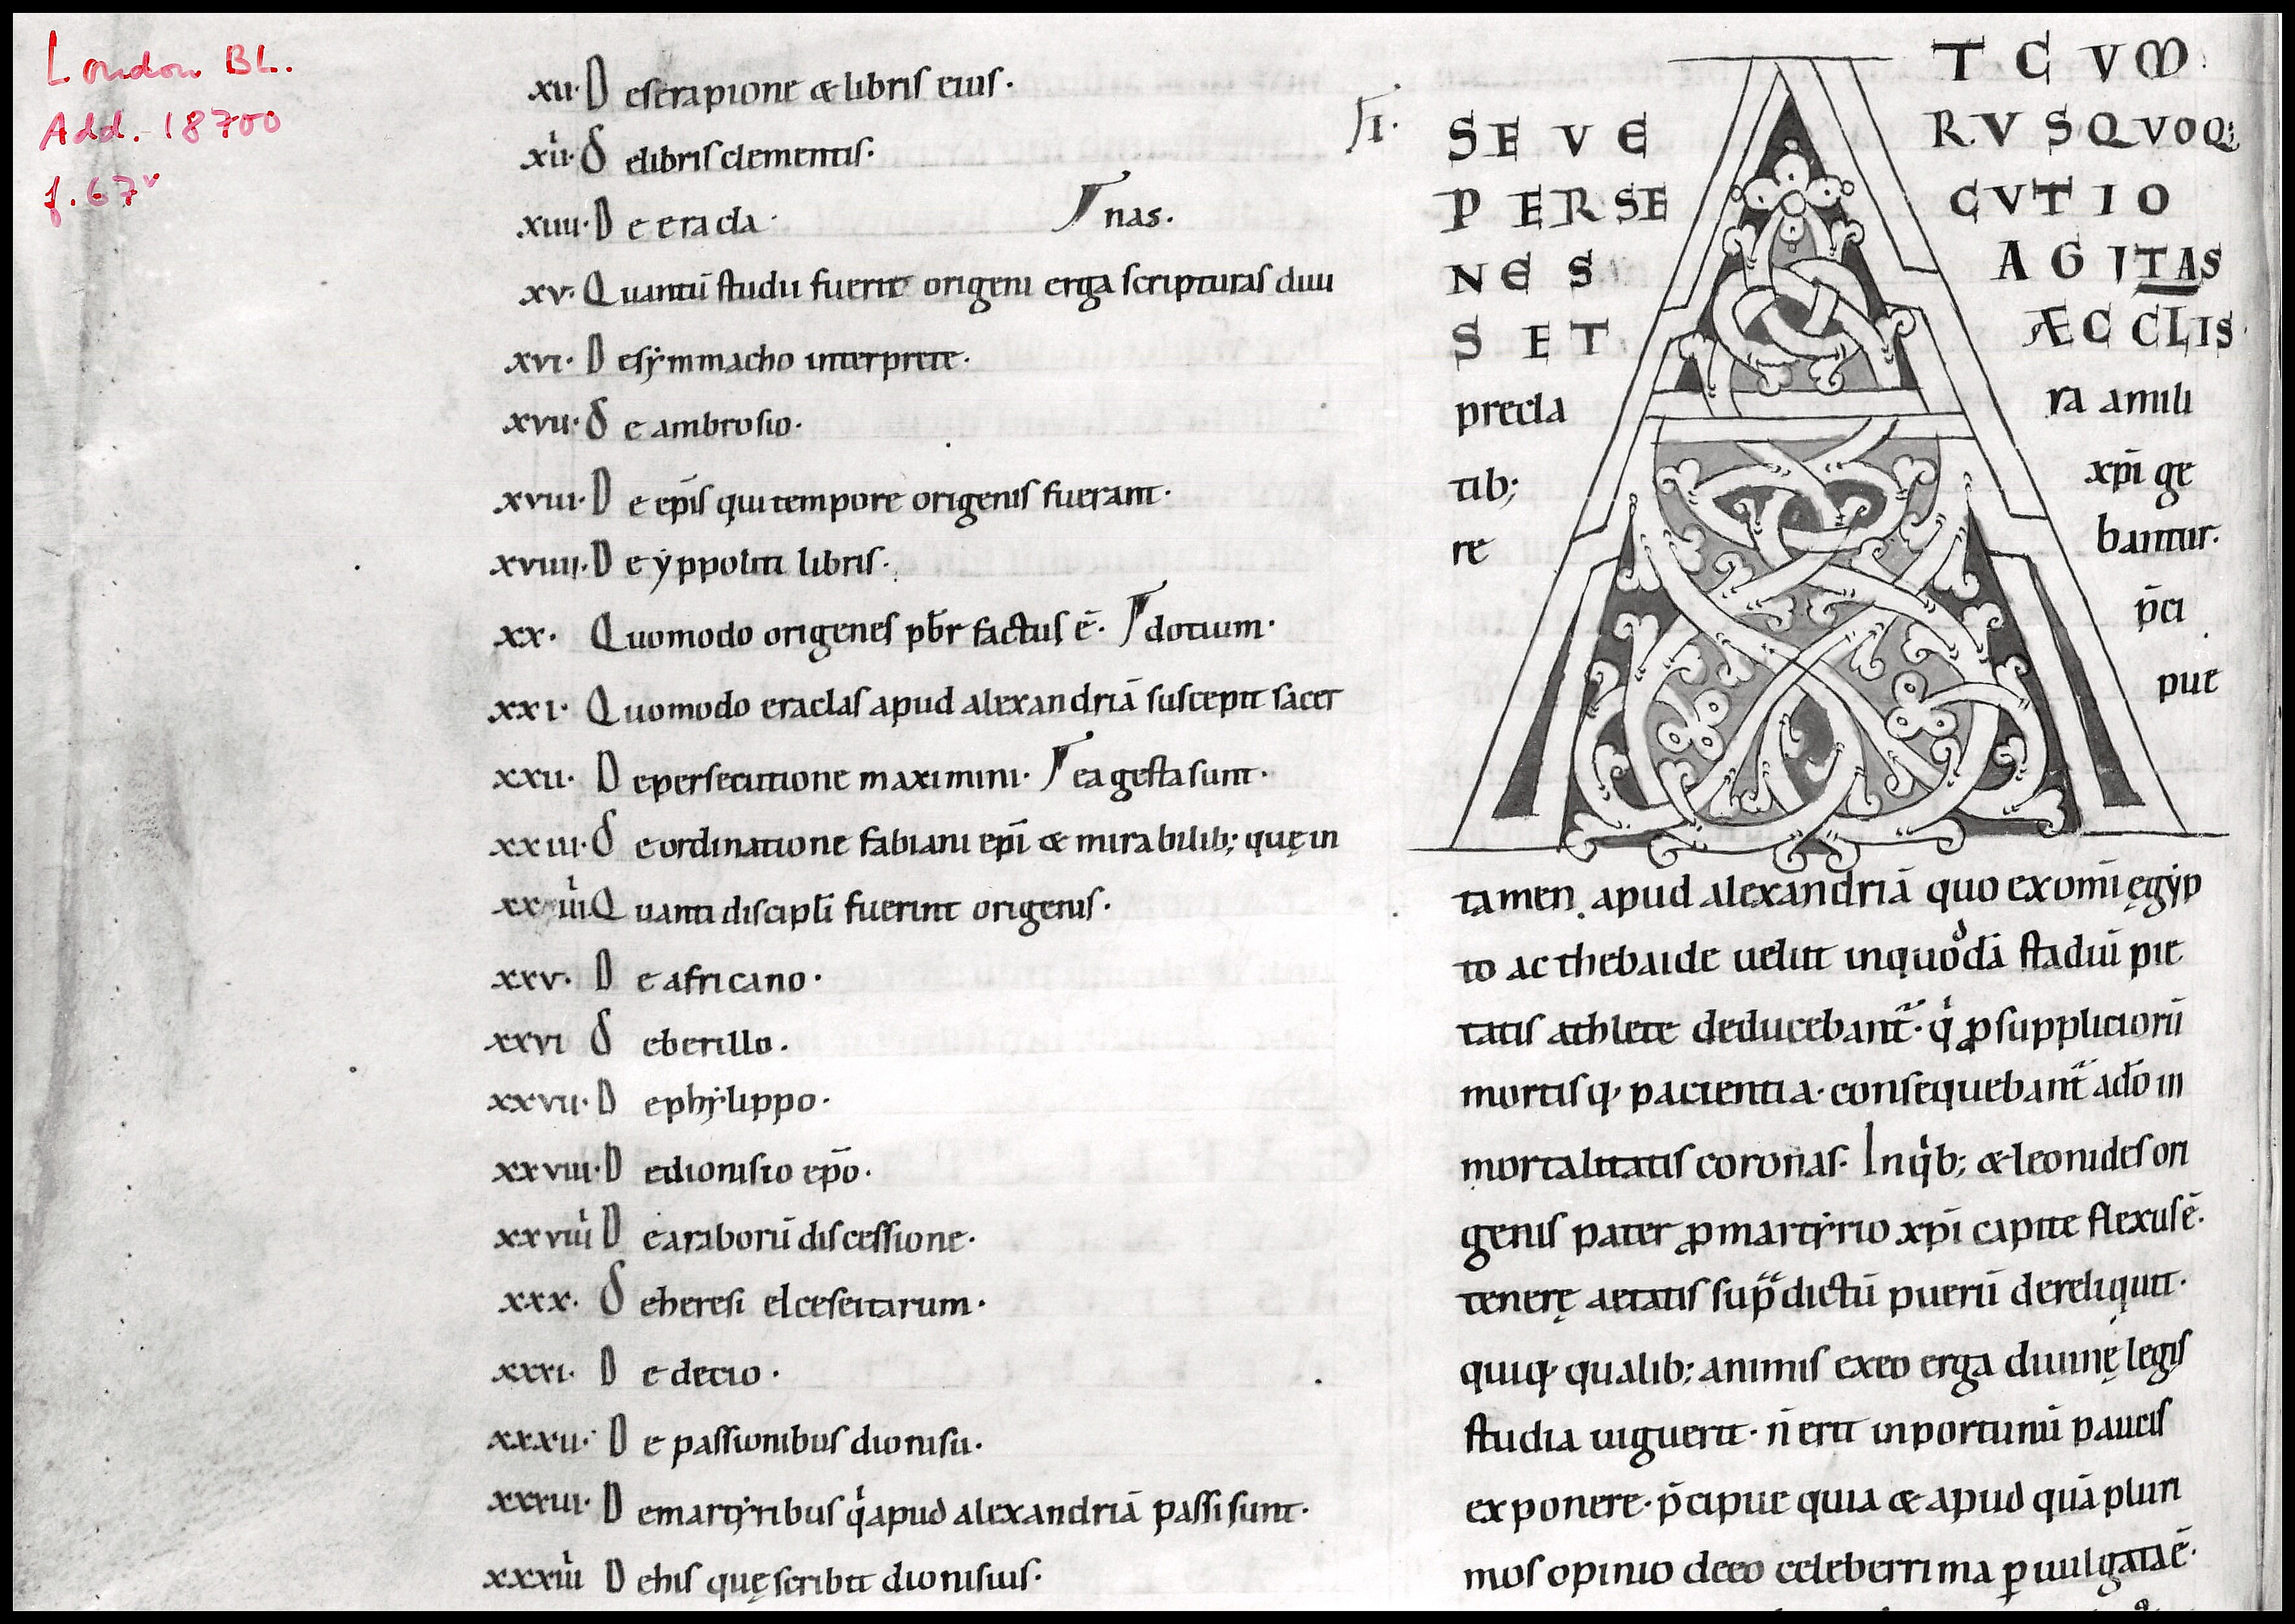 London BL.
Add. 18700
f. 67v
xii· De serapione & libris eius·
xiii· De libris clementis·
xiiii· De eracla· nas.
xv· Quantū studii fuerit origeni erga scripturas diui
xvi· De sẏmmacho interprete·
xvii· De ambrosio·
xviii· De ep̄is qui tempore origenis fuerant·
xviiii· De ẏppoliti libris·
xx· Quomodo origenes pb̄r factus ē· dotium·
xxi· Quomodo eraclas apud alexandriā suscepit sacer
xxii· De persecutione maximini· ea gesta sunt·
xxiii· De ordinatione fabiani ep̄i & mirabilib; quę in
xxiiii Quanti discipli fuerint origenis·
xxv· De africano·
xxvi De berillo·
xxvii· De phẏlippo·
xxviii· De dionisio ep̄o·
xxviiii De araborū discessione·
xxx· De heresi elceseitarum·
xxxi· De decio·
xxxii· De passionibus dionisii·
xxxiii· De martẏribus q̍ apud alexandriā passi sunt·
xxxiiii De his quę scribit dionisius·
I·
A T C V M
SEVE RVS QVOQ;
PERSE CVTIO
NES AGITAS
SET ÆCCLIS·
precla ra a mili
tib; xp̄i ge
re bantur·
p̄ci
pue
tamen apud alexandriā quo ex om̄i ęgẏp
to ac thebaide uelut in quodā stadiū pie
tatis athlete deducebant᷒· q̍ ꝓ suppliciorū
mortisq· pacientia· consequebant᷒ a dō in
mortalitatis coronas· In q̍b; & leonides ori
genis pater ꝓ martẏrio xp̄i capite flexus ē·
tenerę aetatis sup̄dictū puerū dereliquit·
quiq· qualib; animis ex eo erga diuinę legis
studia uiguerit· n̄ erit inportunū paucis
exponere· p̄cipue quia & apud quā pluri
mos opinio de eo celeberrima ꝑuulgata ē·